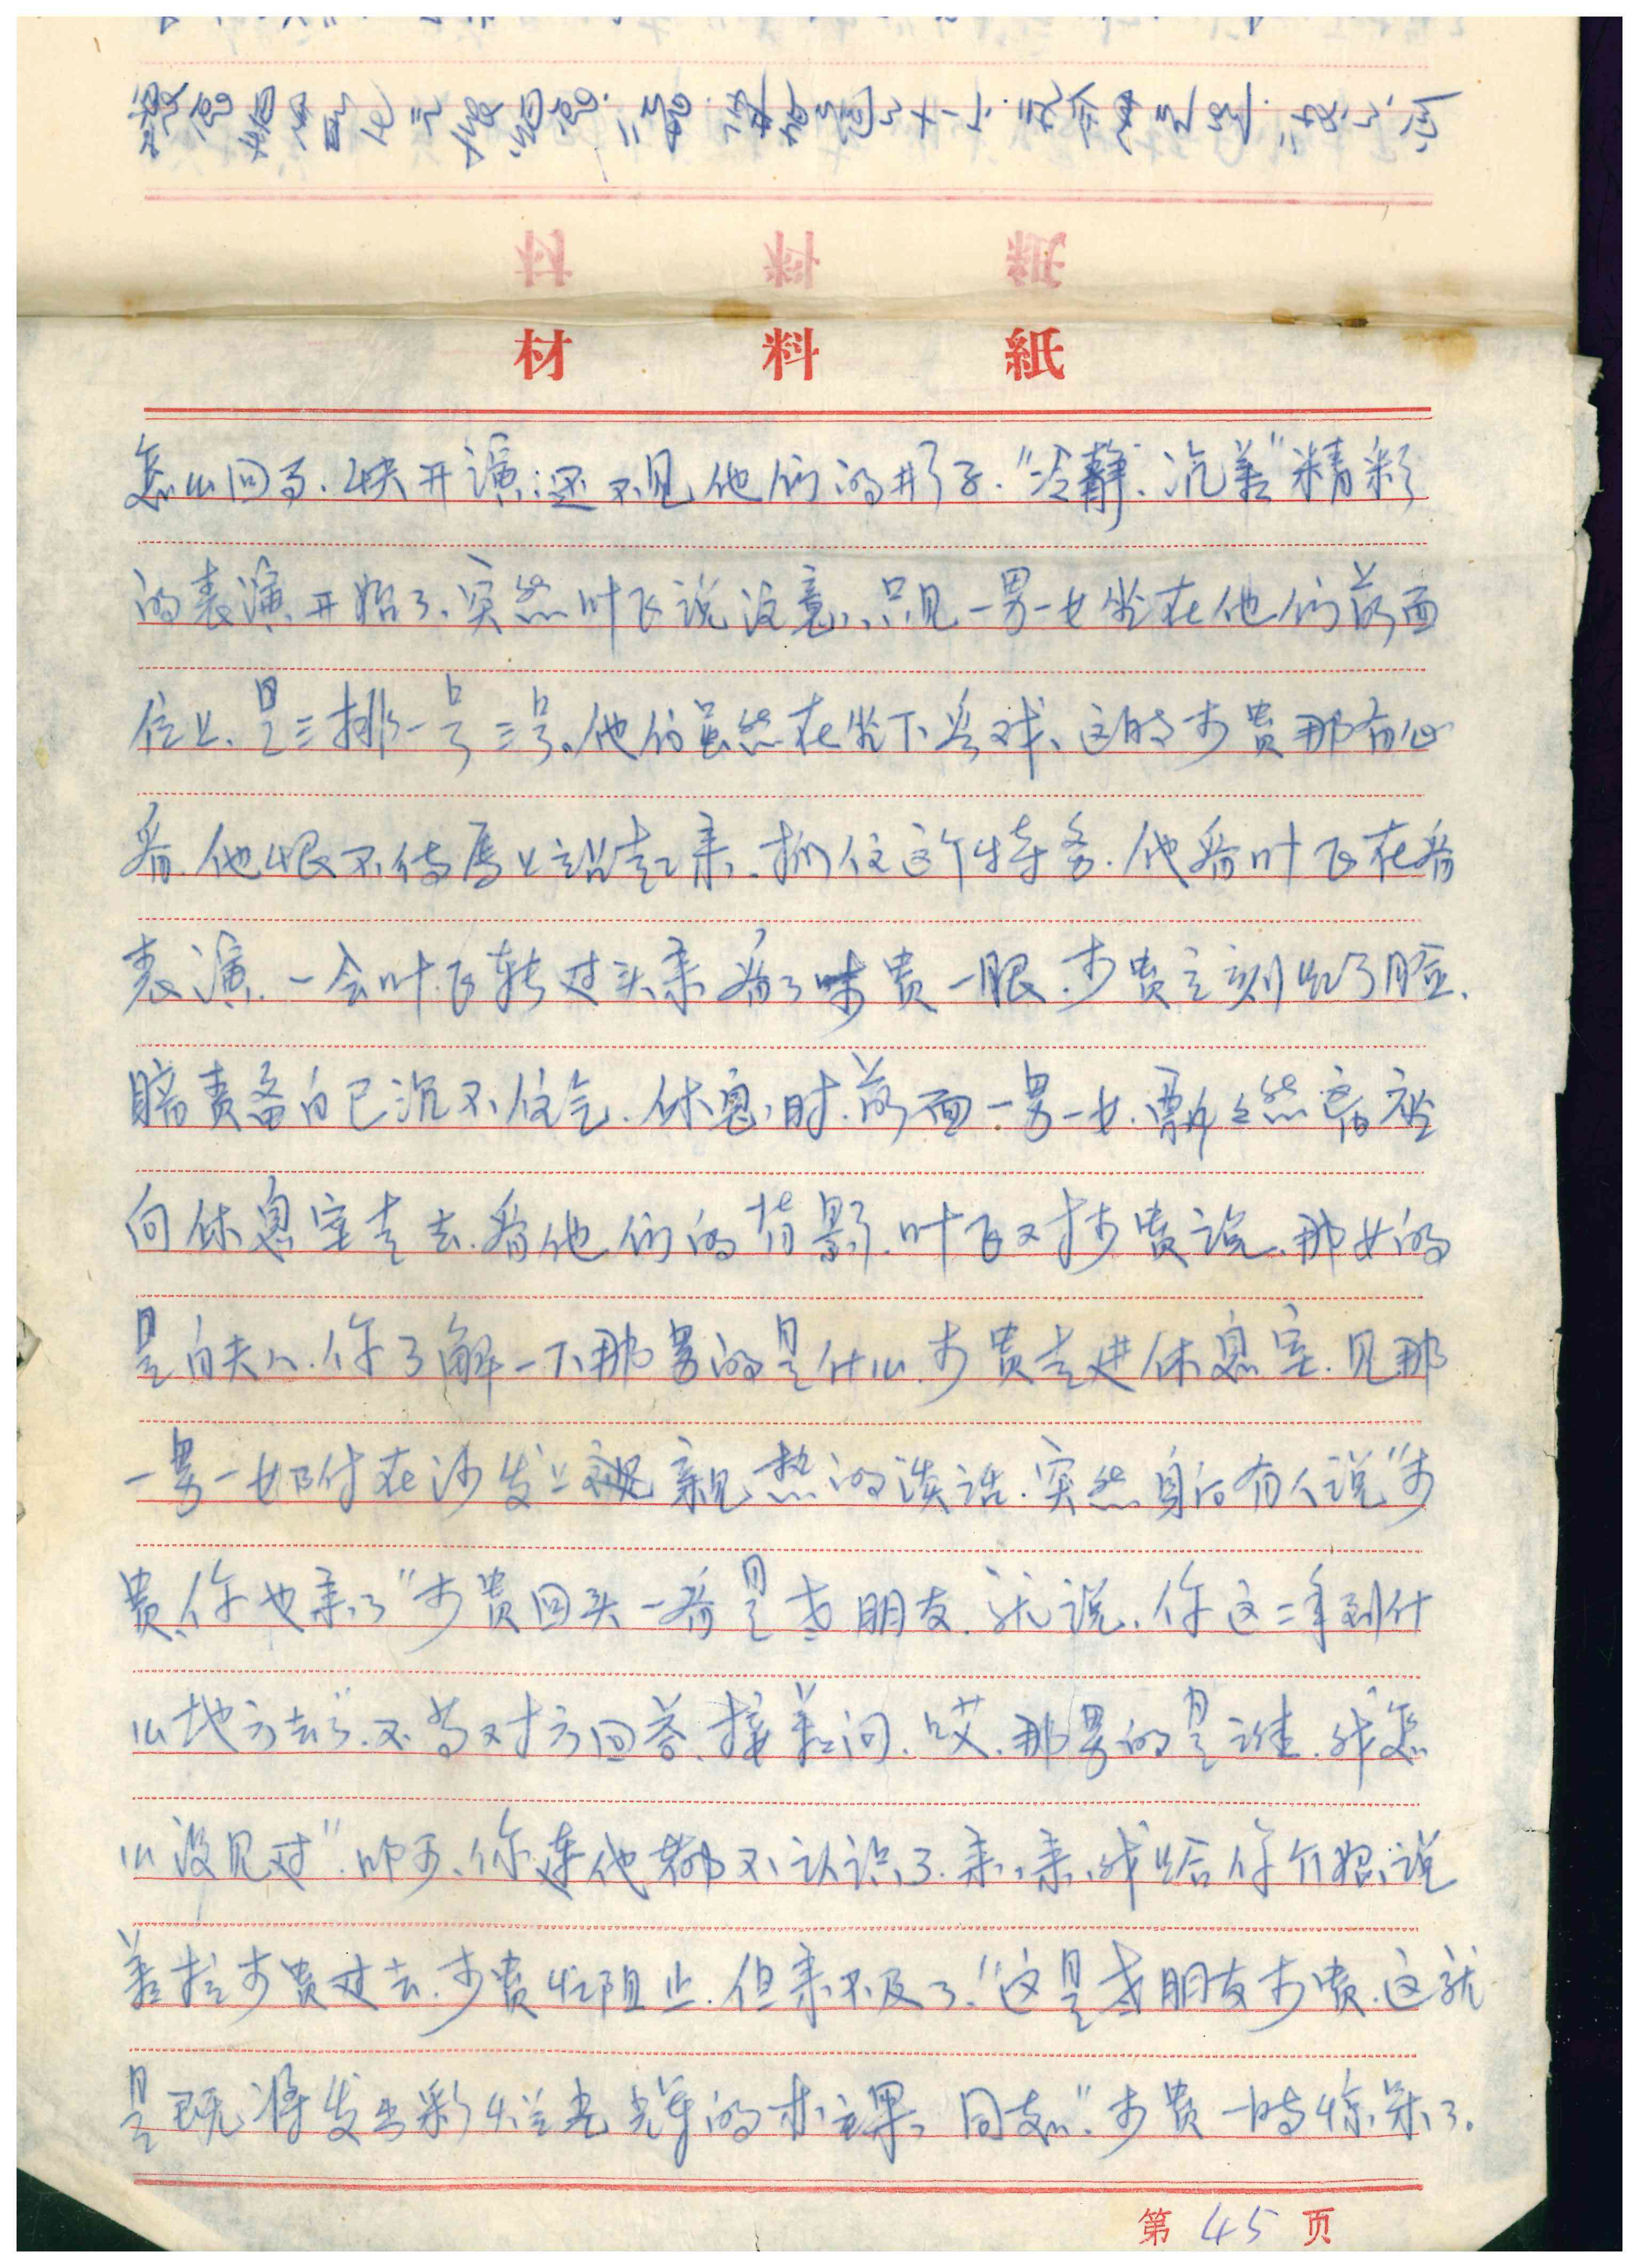 材料紙
怎么回事、快开演还不见他们的影子."冷静、沉着"精彩
的表演开始了、突然叶飞说注意、只见一男一女坐在他们前面
位上、是三排一号三号。他们虽然在坐下看戏、这时步贵那有心
看.他恨不得马上站起来、抓住这个特务.他看叶飞在看
表演.一会叶飞转过头来看了步贵一眼.步贵立刻红了脸、
暗责备自己沉不住气.休息时.前面一男一女.飘飘然离座
向休息室走去.看他们的背影.叶飞又对步贵说.那女的
是白夫人.你了解一下那男的是什么.步贵走进休息室.见那
一男一女附在沙发上亲热的谈话.突然身后有人说"步
贵、你也来了"步贵回头一看是老朋友.就说.你这二年到什
么地方去了".不等对方回答、接着问.哎.那男的是谁.我怎
么没见过".哟、你连他都不认识了.来、来、我给你介绍、说
着拉步贵过去.步贵忙阻止.但来不及了."这是老朋友步贵.这就
是既将发出彩烂光辉的林立果、同志".步贵一时惊呆了.
第 45 页